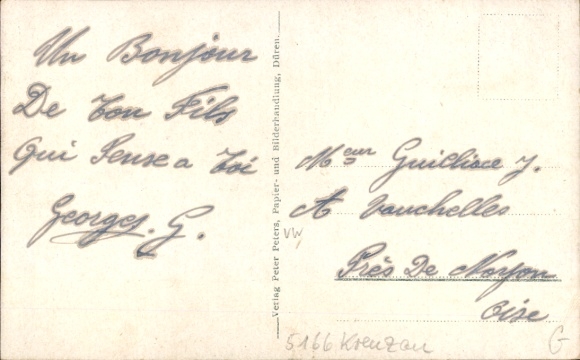 Un Bonjour
De ton Fils
Qui Pense a toi
Georges. G.
Verlag Peter Peters, Papier- und Bilderhandlung, Düren.
Meur Guilliace J.
A Vauchelles
Près De Noyon
Oise
VW
5166 Kreuzau
G